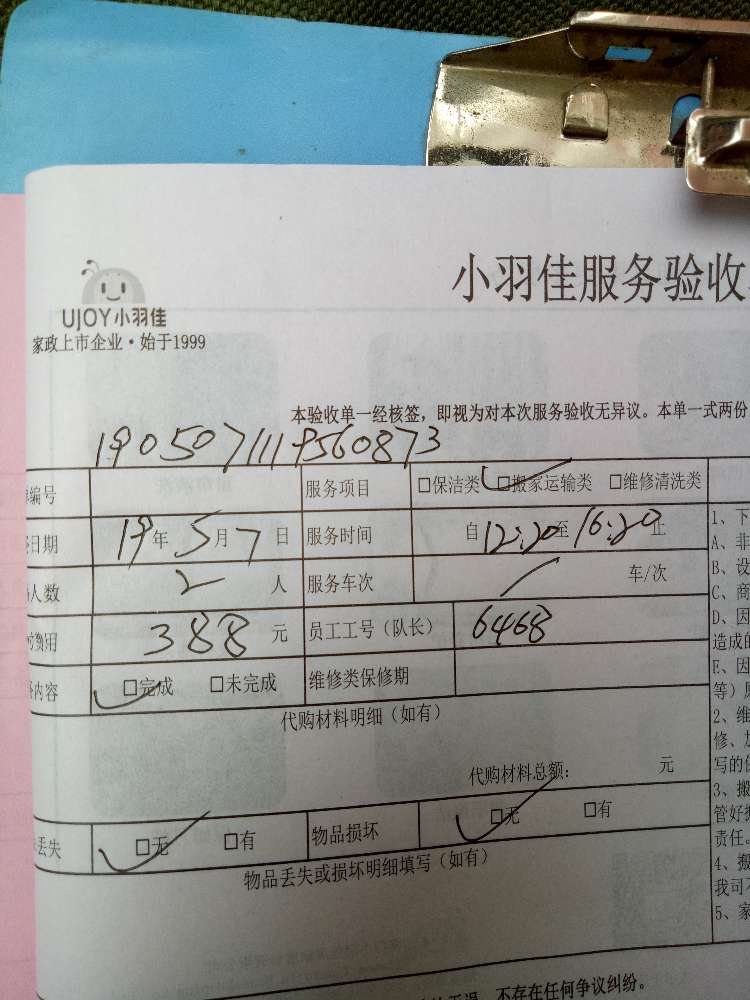 小羽佳服务验收
UJOY小羽佳
家政上市企业·始于1999
本验收单一经核签，即视为对本次服务验收无异议。本单一式两份
1905071119560873
编号 服务项目 □保洁类 □搬家运输类 □维修清洗类
日期 19年5月7日 服务时间 自12:20至16:20止
人数 2人 服务车次 / 车/次
费用 388元 员工工号（队长） 6468
内容 □完成 □未完成 维修类保修期
代购材料明细（如有）
代购材料总额： 元
丢失 □无 □有 物品损坏 □无 □有
物品丢失或损坏明细填写（如有）
1、下
A、非
B、设
C、商
D、因
造成的
E、因
等）
2、维
修、加
写的
3、搬
管好
责任。
4、搬
我司不
5、家
不存在任何争议纠纷。